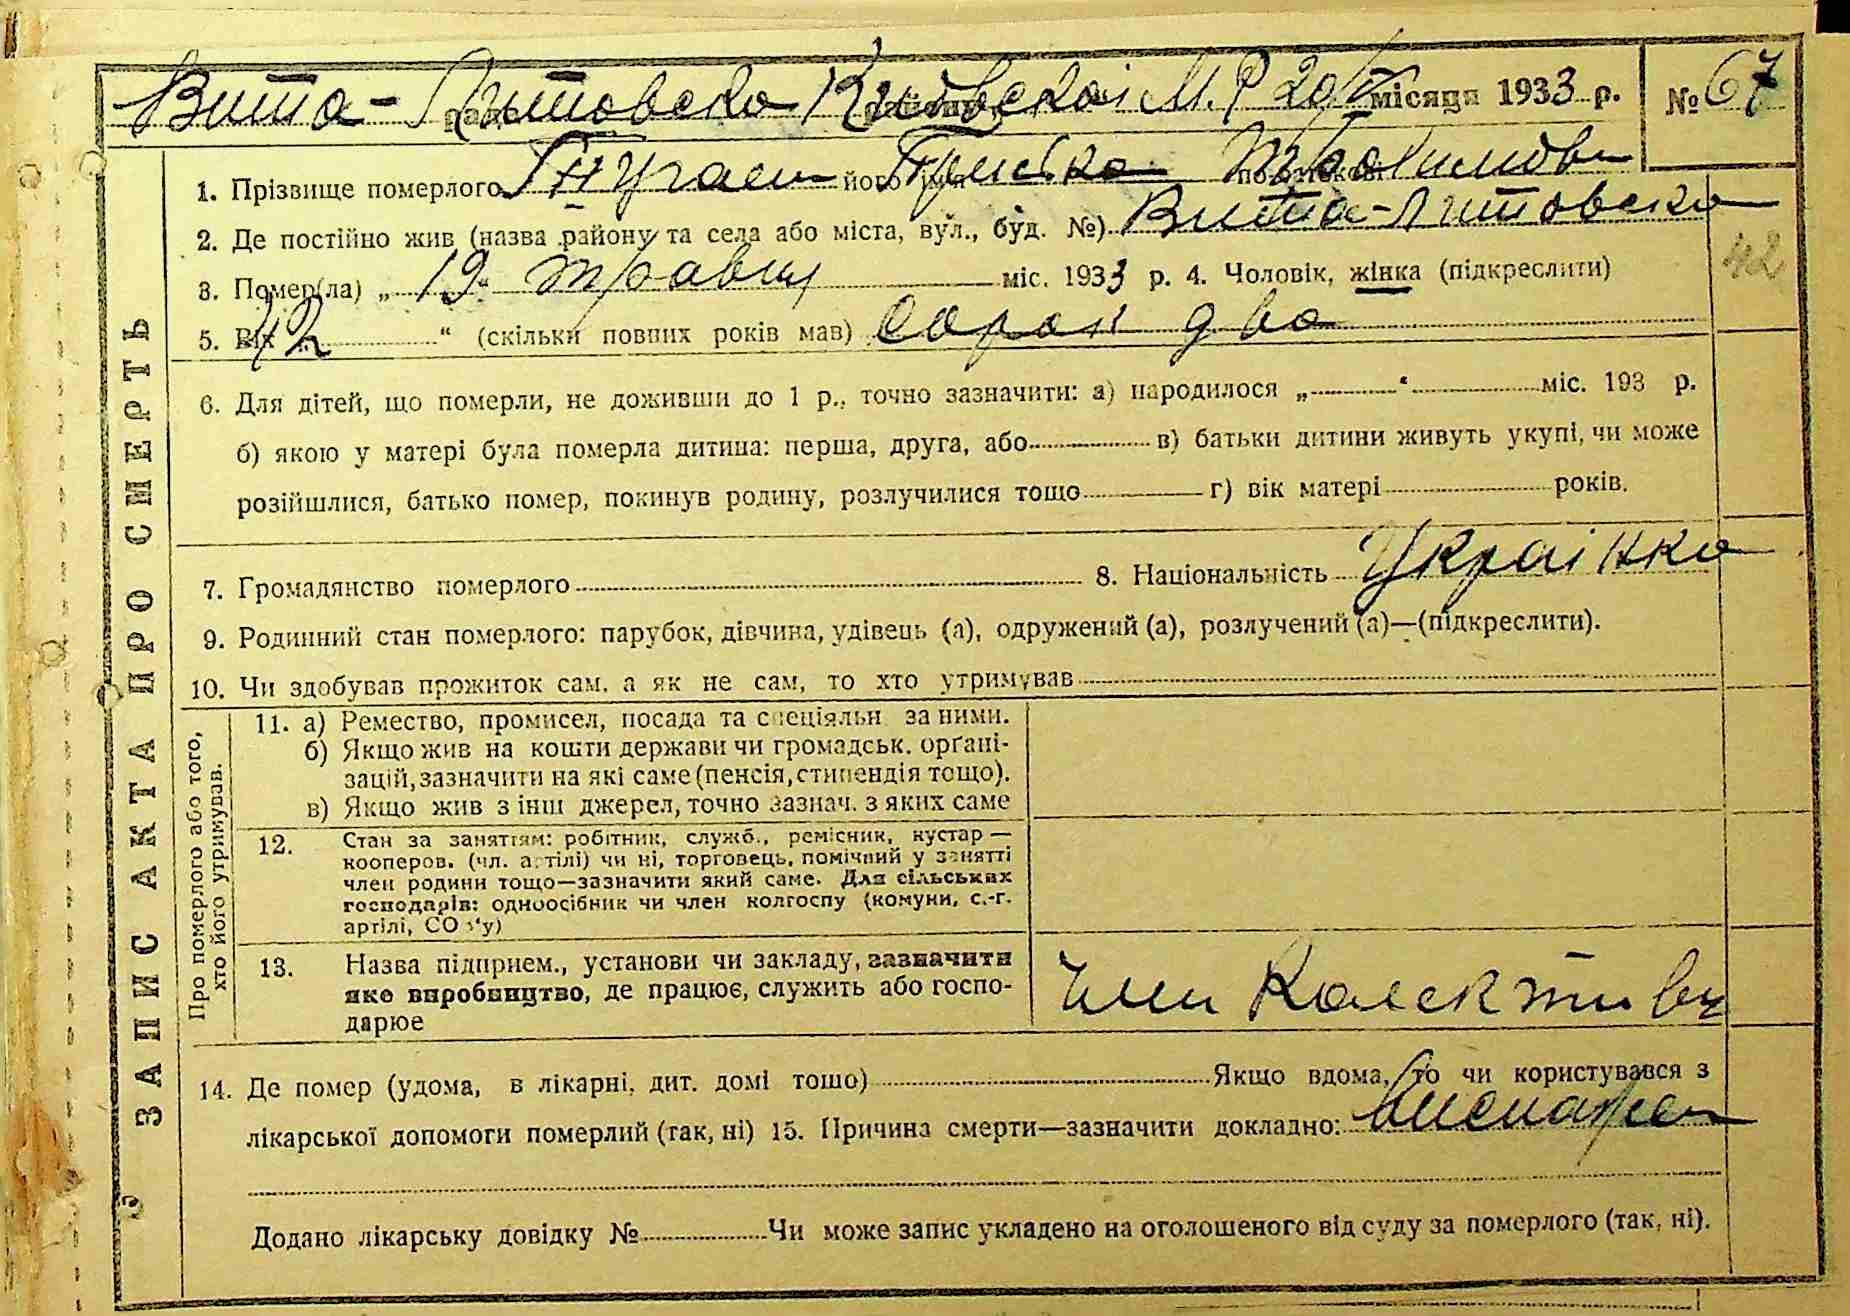 Вита-Литовска Київської М.Р 20/V місяця 1933 р. № 67
ЗАПИС АКТА ПРО СМЕРТЬ
1. Прізвище померлого його
2. Де постійно жив (назва району та села або міста, вул., буд. №) Вита-Литовска
3. Помер(ла) „ 19 " травня міс. 1933 р. 4. Чоловік, жінка (підкреслити)
42
5. Вік „ 42 “ (скільки повних років мав) сорок два
6. Для дітей, що померли, не доживши до 1 р., точно зазначити: а) народилося „ “ міс. 193 р.
б) якою у матері була померла дитина: перша, друга, або в) батьки дитини живуть укупі, чи може
розійшлися, батько помер, покинув родину, розлучилися тощо г) вік матері років.
7. Громадянство померлого 8. Національність Українка
9. Родинний стан померлого: парубок, дівчина, удівець (а), одружений (а), розлучений (а)—(підкреслити).
10. Чи здобував прожиток сам, а як не сам, то хто утримував
Про померлого або того,
хто його утримував.
11. а) Ремество, промисел, посада та спеціяльн за ними.
б) Якщо жив на кошти держави чи громадськ. орґані-
зацій, зазначити на які саме (пенсія, стипендія тощо).
в) Якщо жив з інш джерел, точно зазнач. з яких саме
12. Стан за заняттям: робітник, служб., ремісник, кустар —
кооперов. (чл. артілі) чи ні, торговець, помічний у занятті
член родини тощо—зазначити який саме. Для сільських
господарів: одноосібник чи член колгоспу (комуни, с.-г.
артілі, СОЗ'у)
13. Назва підприєм., установи чи закладу, зазначити
яке виробництво, де працює, служить або госпо-
дарює
Член Колективу
14. Де помер (удома, в лікарні, дит. домі тошо) Якщо вдома, то чи користувався з
лікарської допомоги померлий (так, ні) 15. Причина смерти—зазначити докладно:
Додано лікарську довідку № Чи може запис укладено на оголошеного від суду за померлого (так, ні).